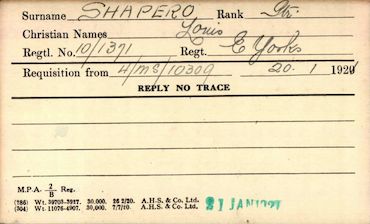 Surname SHAPERO Rank Pte.
Christian Names Louis
Regtl. No. 10/1371 Regt. E Yorks
Requisition from 4/MS/10309 20.1 1921
REPLY NO TRACE
M.P.A. 2/B Reg.
(786) Wt. 39703-3937. 30,000. 26/2/20. A.H.S. & Co. Ltd.
(304) Wt. 11076-4907. 30,000. 7/7/10. A.H.S. & Co. Ltd. 21 JAN 1921